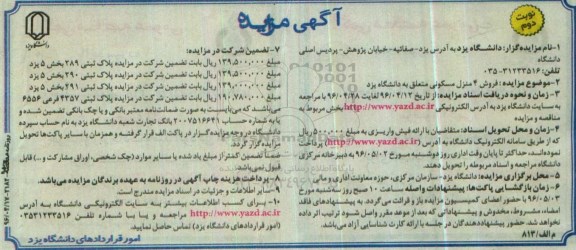 آگهی مزایده
نوبت دوم
دانشگاه یزد
۱-نام مزایده‌گزار: دانشگاه یزد به آدرس یزد- صفائیه- خیابان پژوهش- پردیس اصلی
دانشگاه
تلفن: ۰۳۵-۳۱۲۳۳۵۱۶
۲-موضوع مزایده: فروش ۴ منزل مسکونی متعلق به دانشگاه یزد
۳-زمان و نحوه دریافت اسناد مزایده: از تاریخ ۹۶/۰۴/۱۲ لغایت ۹۶/۰۴/۲۸ با مراجعه
به سایت دانشگاه یزد به آدرس الکترونیکی http://www.yazd.ac.ir بخش مربوط به
مناقصه و مزایده
۴-زمان و محل تحویل اسناد: متقاضیان با ارائه فیش واریزی به مبلغ ۵۰۰،۰۰۰ ریال
که از طریق سامانه الکترونیک دانشگاه به آدرس (http://www.yazd.ac.ir) پرداخت
نموده‌اند، حداکثر تا پایان وقت اداری روز دوشنبه مورخ ۹۶/۰۵/۰۲ به دبیرخانه مرکزی
دانشگاه مراجعه و اسناد مربوطه را تحویل دهند.
۵- محل برگزاری مزایده: دانشگاه یزد- سازمان مرکزی، حوزه معاونت اداری و مالی
۶- زمان بازگشایی پاکت‌ها: پیشنهادات واصله ساعت ۱۰ صبح روز سه‌شنبه مورخ
۹۶/۰۵/۰۳ با حضور اعضای کمیسیون مزایده باز و قرائت می‌گردد. به پیشنهادهای فاقد
امضاء، مشروط، مخدوش و پیشنهاداتی که بعد از موعد مقرر واصل شود ترتیب اثر داده
نخواهد شد. حضور برندگان در جلسه با ارائه کارت شناسایی آزاد می‌باشد.
م الف/۸۱۳
۷- تضمین شرکت در مزایده:
مبلغ ۱۳۹,۵۰۰,۰۰۰ ریال بابت تضمین شرکت در مزایده پلاک ثبتی ۳۸۹ بخش ۵ یزد
مبلغ ۱۳۹,۵۰۰,۰۰۰ ریال بابت تضمین شرکت در مزایده پلاک ثبتی ۳۹۰ بخش ۵ یزد
ریال بابت تضمین شرکت در مزایده پلاک ثبتی ۴۹۱ بخش ۵ یزد
ریال بابت تضمین شرکت در مزایده پلاک ثبتی ۴۳۵۷ فرعی ۶۵۵۶
می‌باشد که می‌بایست به صورت ضمانتنامه معتبر بانکی و یا چک بانکی تضمین شده و
یا به شماره حساب ۲۰۰۷۵۱۶۶۴۱ بانک تجارت شعبه دانشگاه یزد به نام حساب سپرده
دانشگاه در وجه مزایده‌گزار در پاکت الف قرار گرفته و همزمان با سایر پاکت‌ها تحویل
مزایده‌گزار گردد.
ضمناً تضمین کمتر از مبلغ یاد شده یا سایر موارد (چک شخصی، اوراق مشارکت و ...) قابل
قبول نمی‌باشد.
۸- پرداخت هزینه چاپ آگهی در روزنامه به عهده برندگان مزایده می‌باشد.
۹- سایر اطلاعات و جزئیات در اسناد مزایده مندرج است.
۱۰- برای کسب اطلاعات بیشتر به سایت الکترونیکی دانشگاه به آدرس
http://www.yazd.ac.ir مراجعه و یا با شماره تلفن ۰۳۵۳۱۲۳۳۵۱۶
(امور قراردادهای دانشگاه یزد) تماس حاصل نمایید.
امور قراردادهای دانشگاه یزد